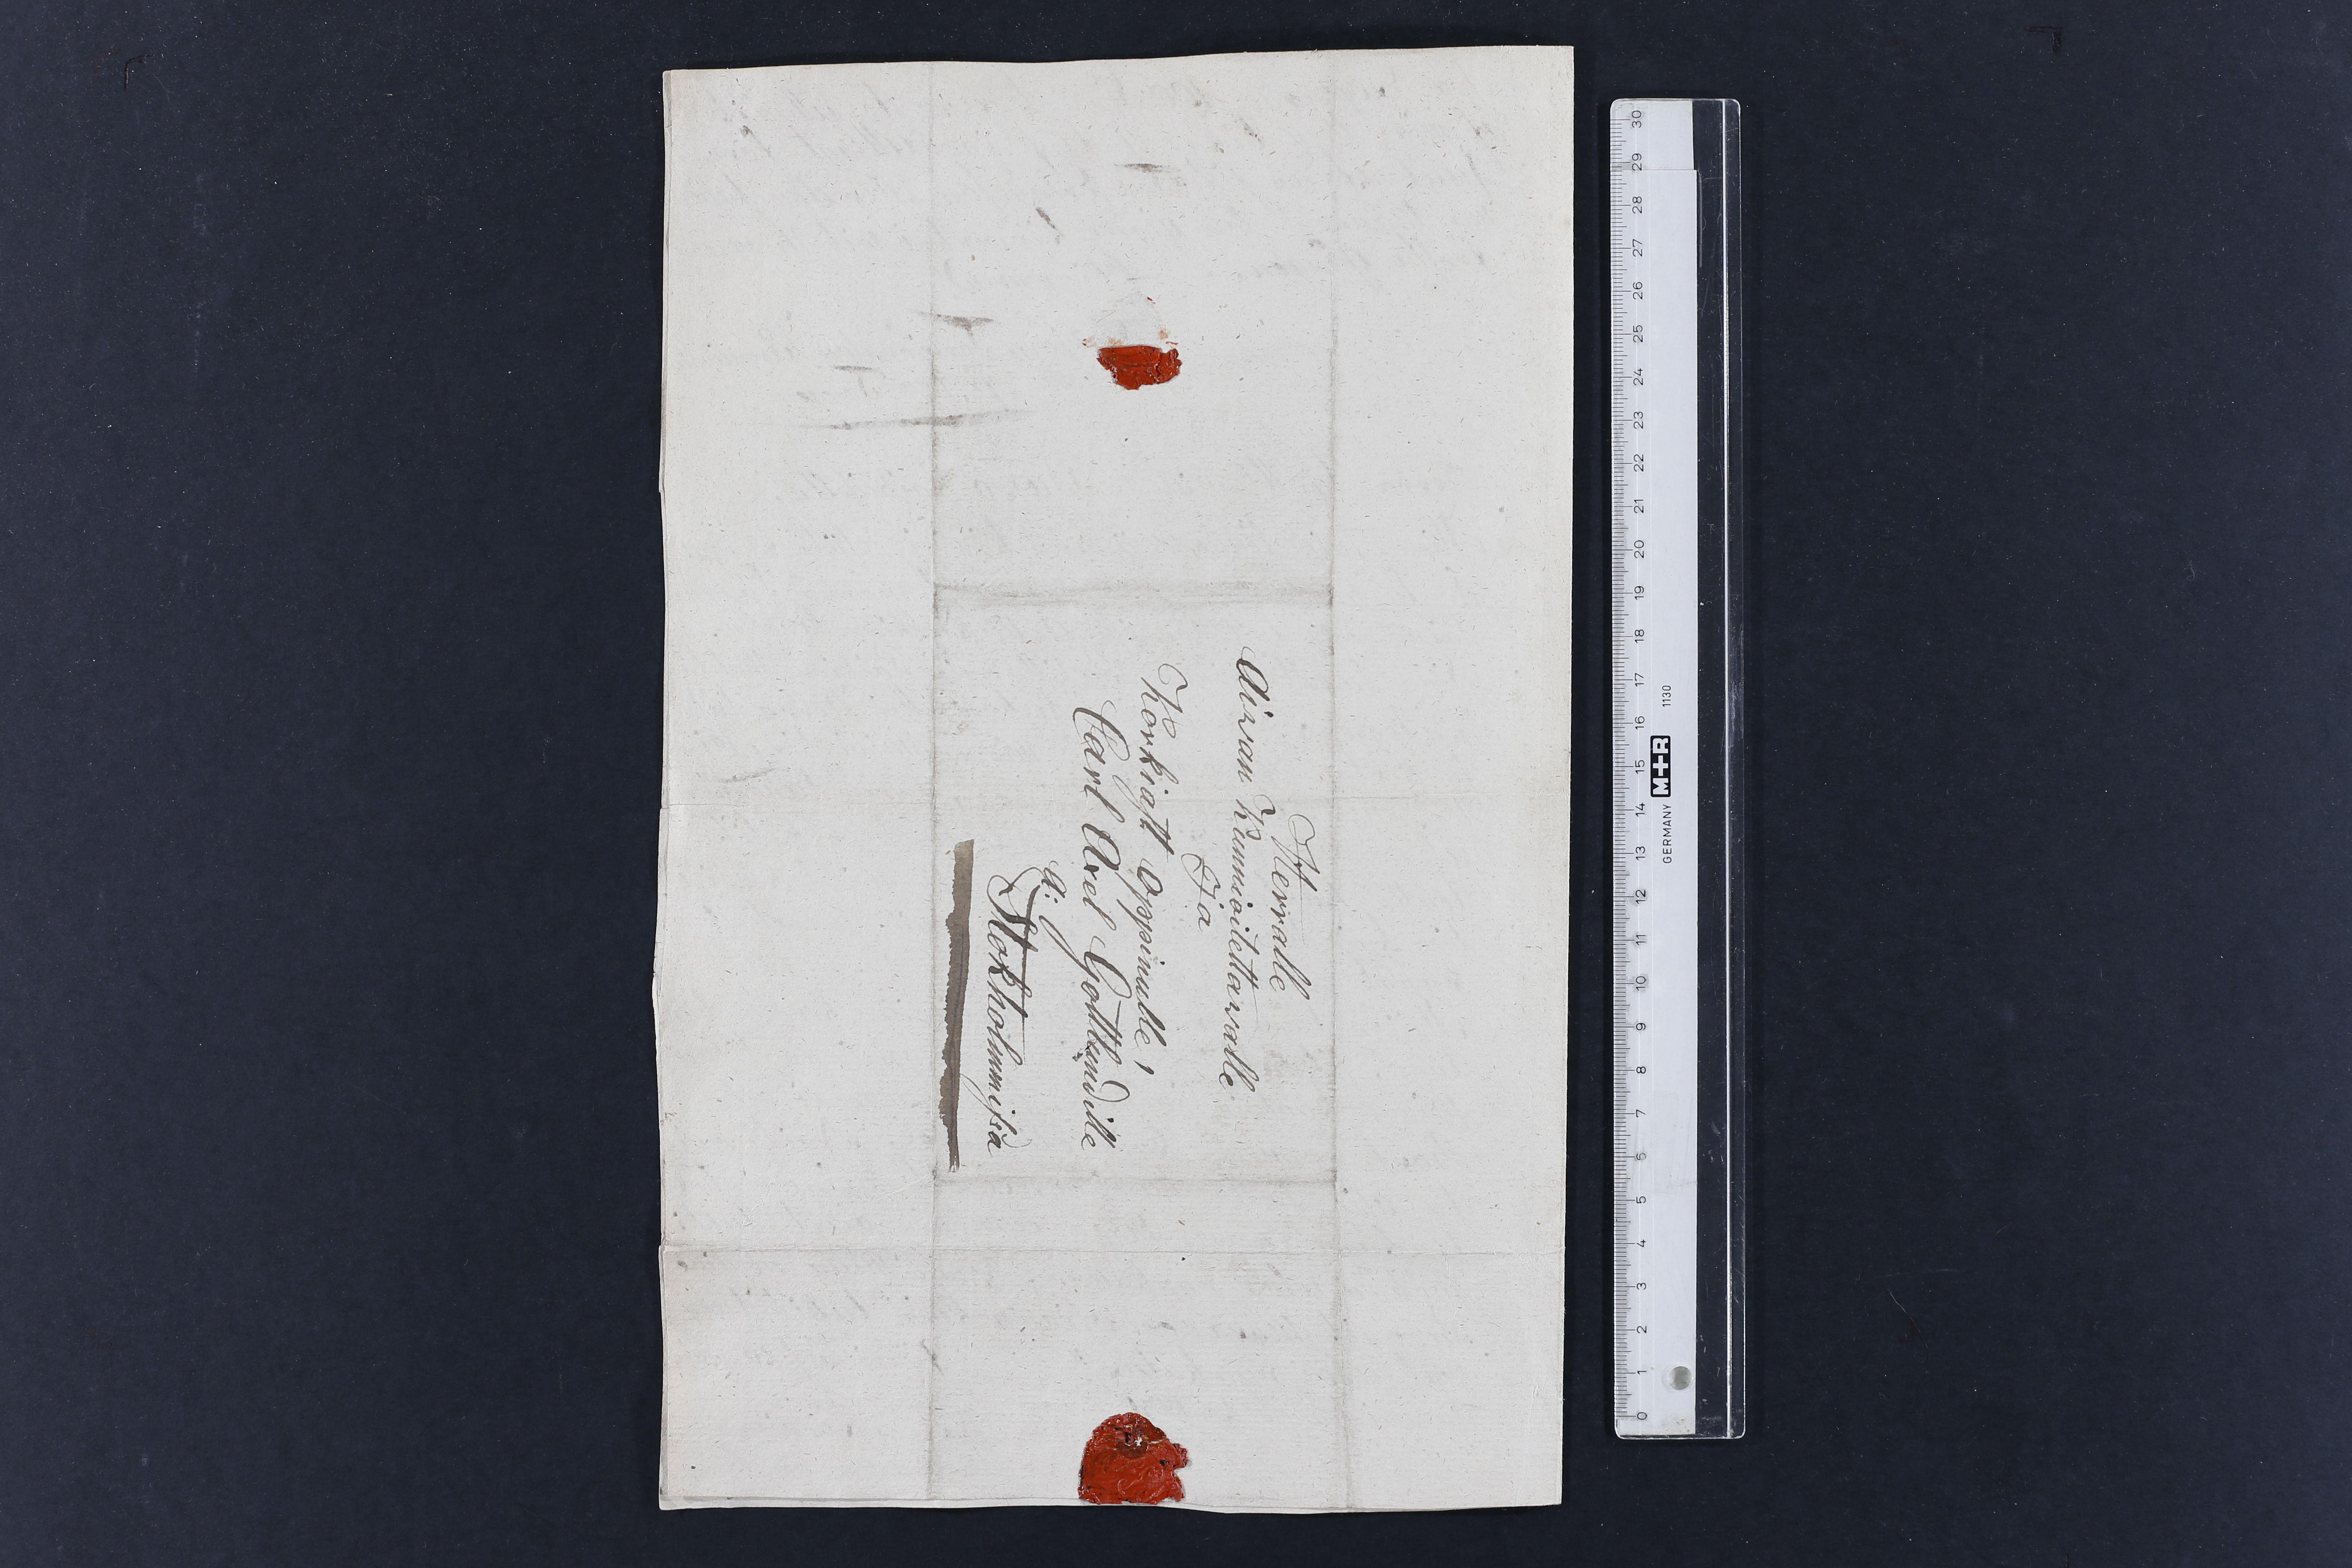 Herralle
Aivan Kunnioitettavalle
Ja
Korkiast Oppinulle!
Carl Axel Gottlundille
a:
Stokholmmissa
30
29
28
27
26
25
24
23
22
21
20
19
18
17
16
15
14
13
12
11
10
9
8
7
6
5
4
3
2
1
0
GERMANY M+R 1130